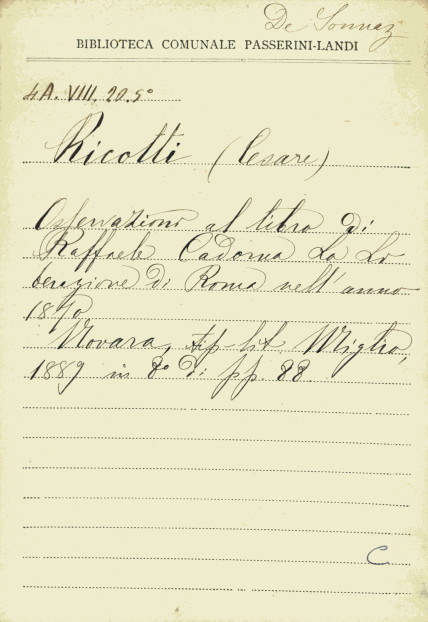 De Sonnaz
BIBLIOTECA COMUNALE PASSERINI-LANDI
4A. VIII. 20. 5°
Ricotti (Cesare)
Osservazioni al libro di
Raffaele Cadorna La Li
berazione di Roma nell'anno
1870
Novara, tip-lit. Miglio,
1889 in 8° di pp. 88.
C